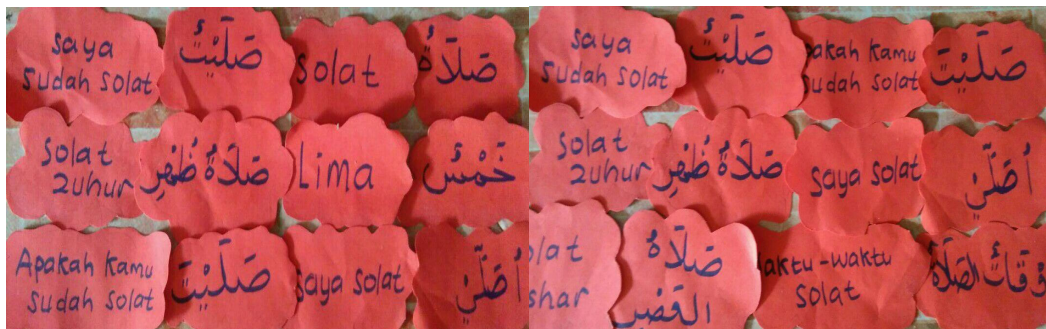 saya
sudah solat
صَلَيْتُ
solat
صَلَاةٌ
solat
zuhur
صَلَاةُ ظُهْرِ
Lima
خَمْسٌ
Apakah kamu
sudah solat
صَلَيْتَ
saya solat
أُصَلِّيْ
saya
sudah solat
صَلَيْتُ
pakah kamu
sudah solat
صَلَيْتَ
solat
zuhur
صَلَاةُ ظُهْرِ
saya solat
أُصَلِّيْ
olat
shar
صَلَاةُ
aktu-waktu
solat
وْقَاتُ الصَّلَاةَ